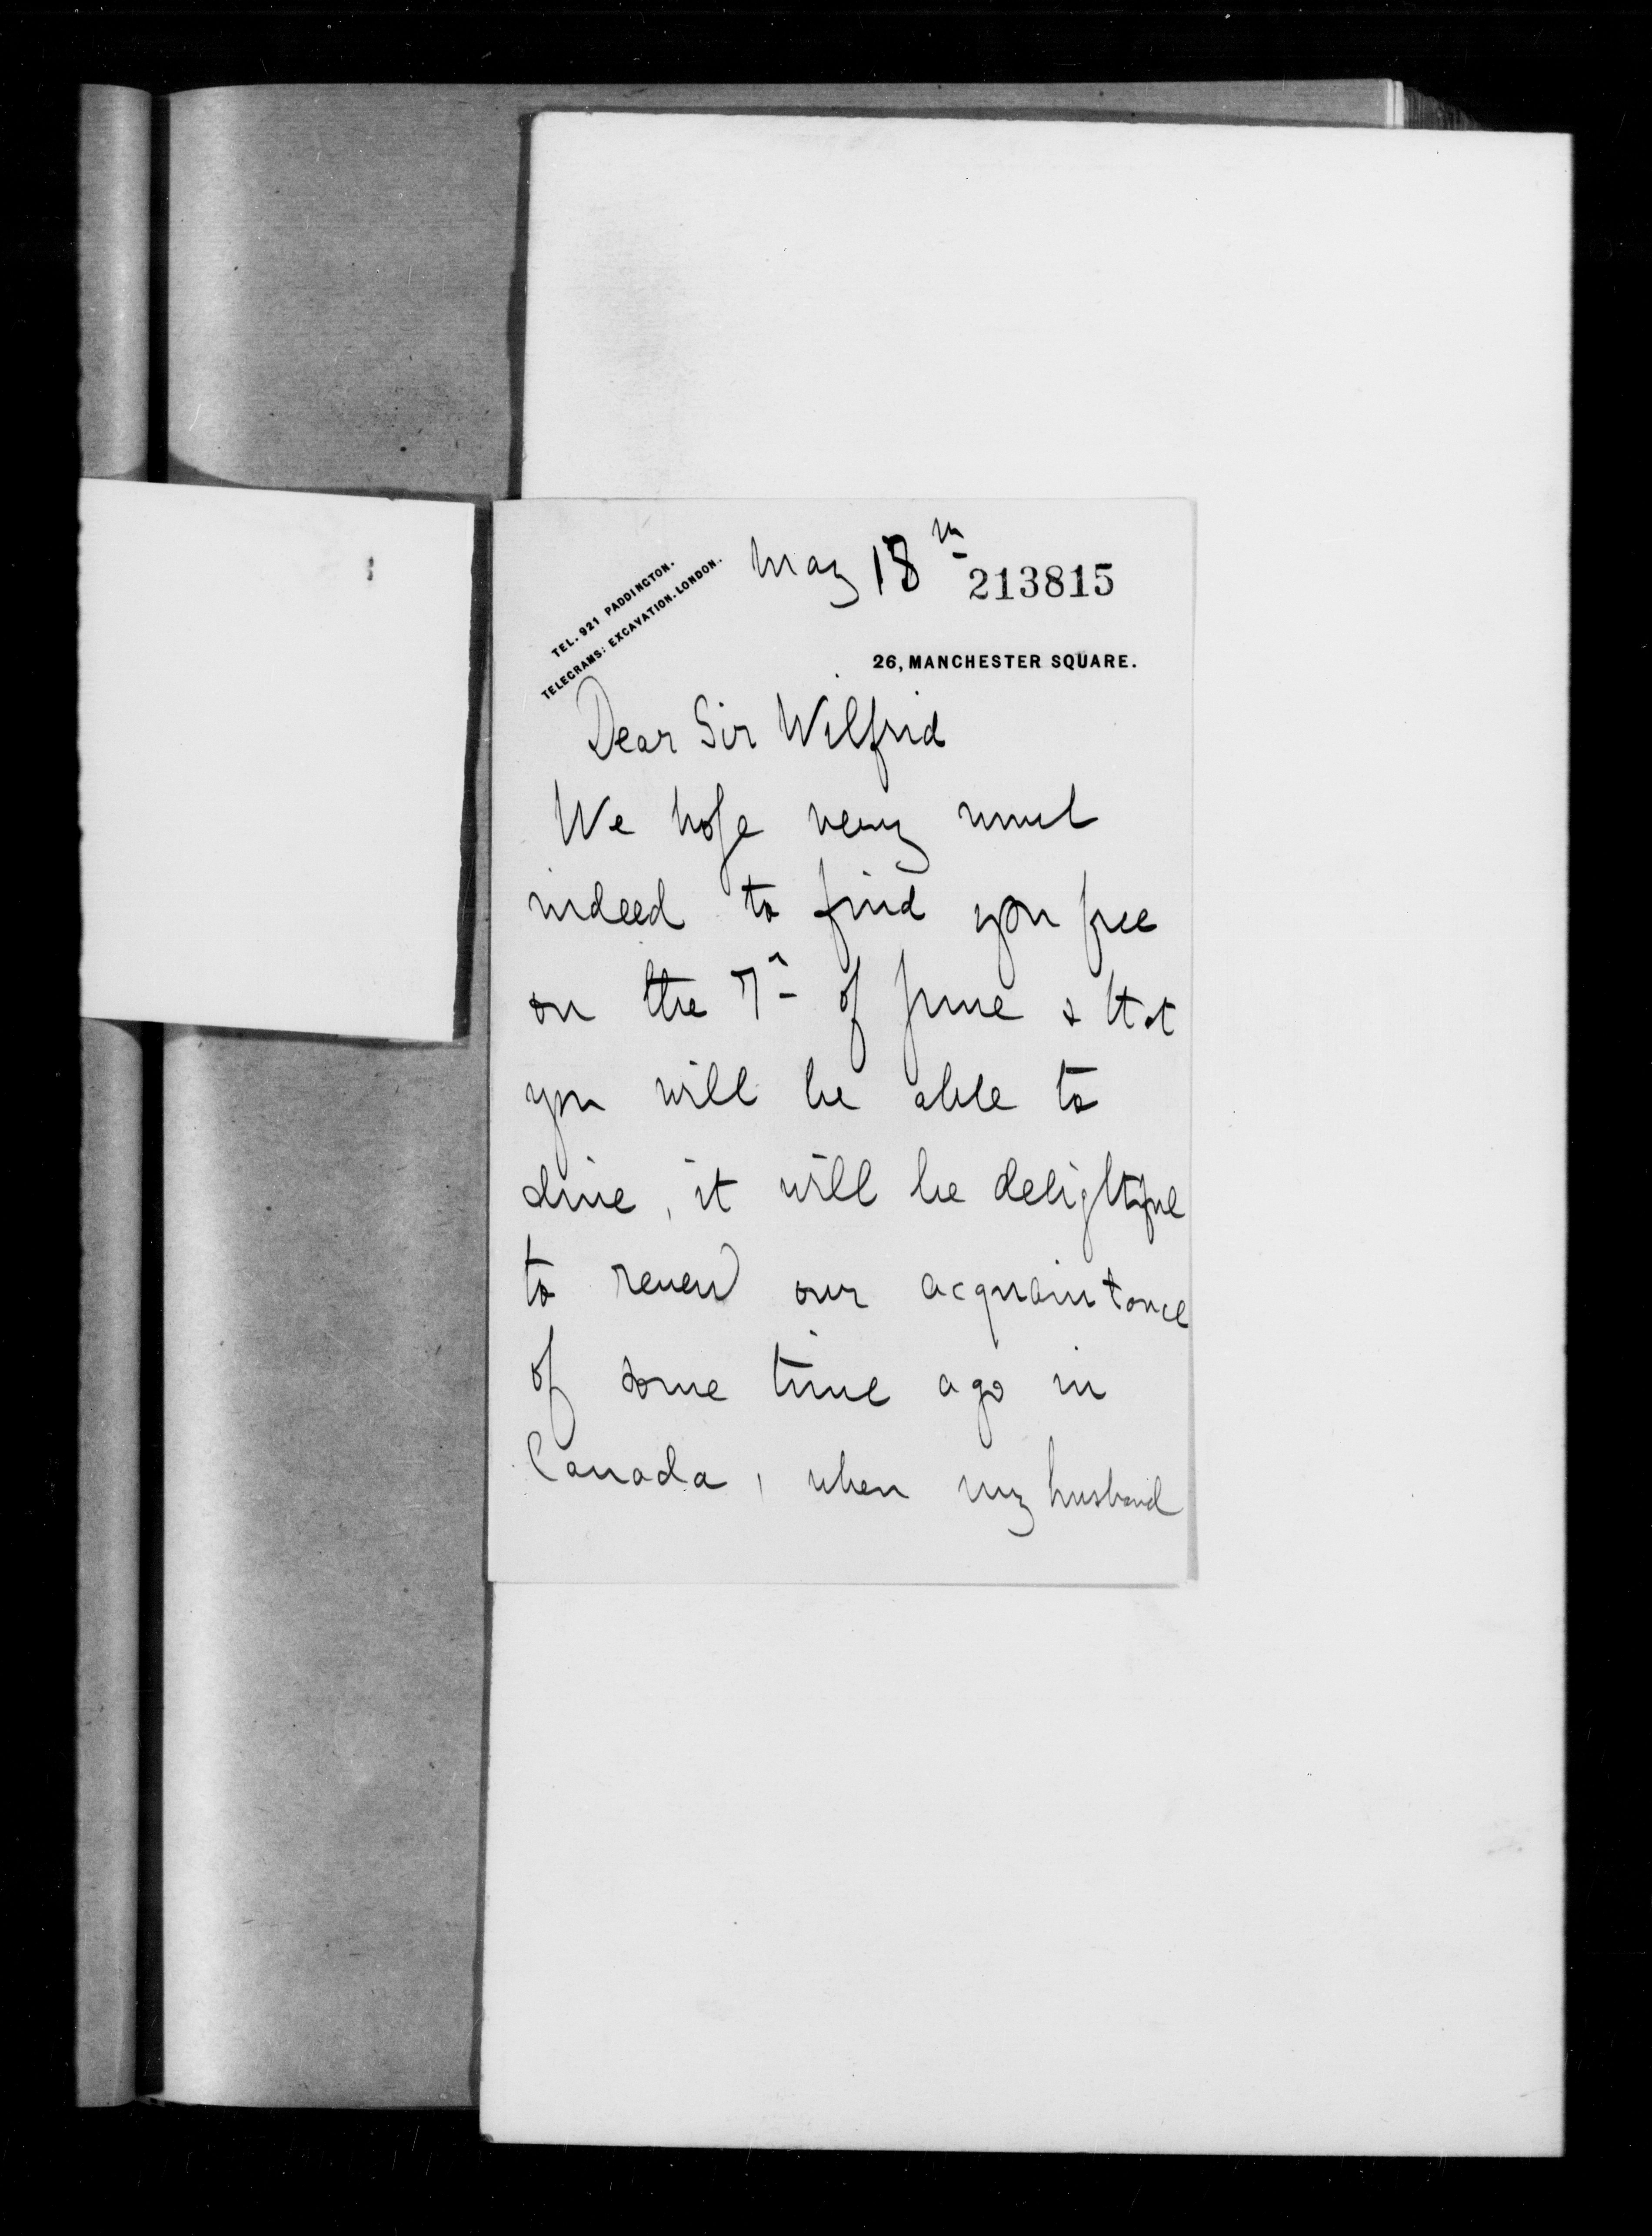 May 18th
213815
TEL. 921 PADDINGTON.
TELEGRAMS: EXCAVATION. LONDON.
26, MANCHESTER SQUARE.
Dear Sir Wilfrid
We hope very much
indeed to find you free
on the 7th of June & that
you will be able to
dine, it will be delightful
to renew our acquaintance
of some time ago in
Canada, when my husband